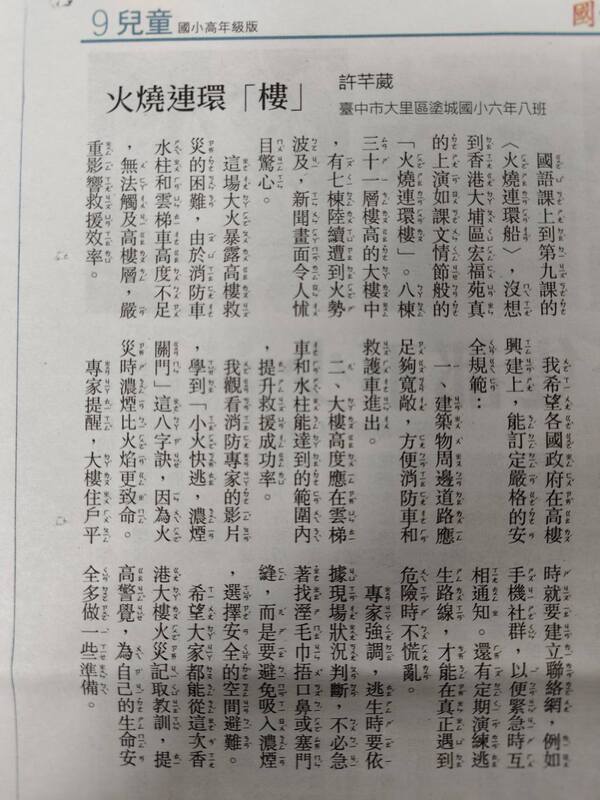 9 兒童 國小高年級版
國
火燒連環「樓」
許芊葳
臺中市大里區塗城國小六年八班
國語課上到第九課的
〈火燒連環船〉，沒想
到香港大埔區宏福苑真
的上演如課文情節般的
「火燒連環樓」。八棟
三十一層樓高的大樓中
，有七棟陸續遭到火勢
波及，新聞畫面令人怵
目驚心。
這場大火暴露高樓救
災的困難，由於消防車
水柱和雲梯車高度不足
，無法觸及高樓層，嚴
重影響救援效率。
我希望各國政府在高樓
興建上，能訂定嚴格的安
全規範：
一、建築物周邊道路應
足夠寬敞，方便消防車和
救護車進出。
二、大樓高度應在雲梯
車和水柱能達到的範圍內
，提升救援成功率。
我觀看消防專家的影片
，學到「小火快逃，濃煙
關門」這八字訣，因為火
災時濃煙比火焰更致命。
專家提醒，大樓住戶平
時就要建立聯絡網，例如
手機社群，以便緊急時互
相通知。還有定期演練逃
生路線，才能在真正遇到
危險時不慌亂。
專家強調，逃生時要依
據現場狀況判斷，不必急
著找溼毛巾摀口鼻或塞門
縫，而是要避免吸入濃煙
，選擇安全的空間避難。
希望大家都能從這次香
港大樓火災記取教訓，提
高警覺，為自己的生命安
全多做一些準備。